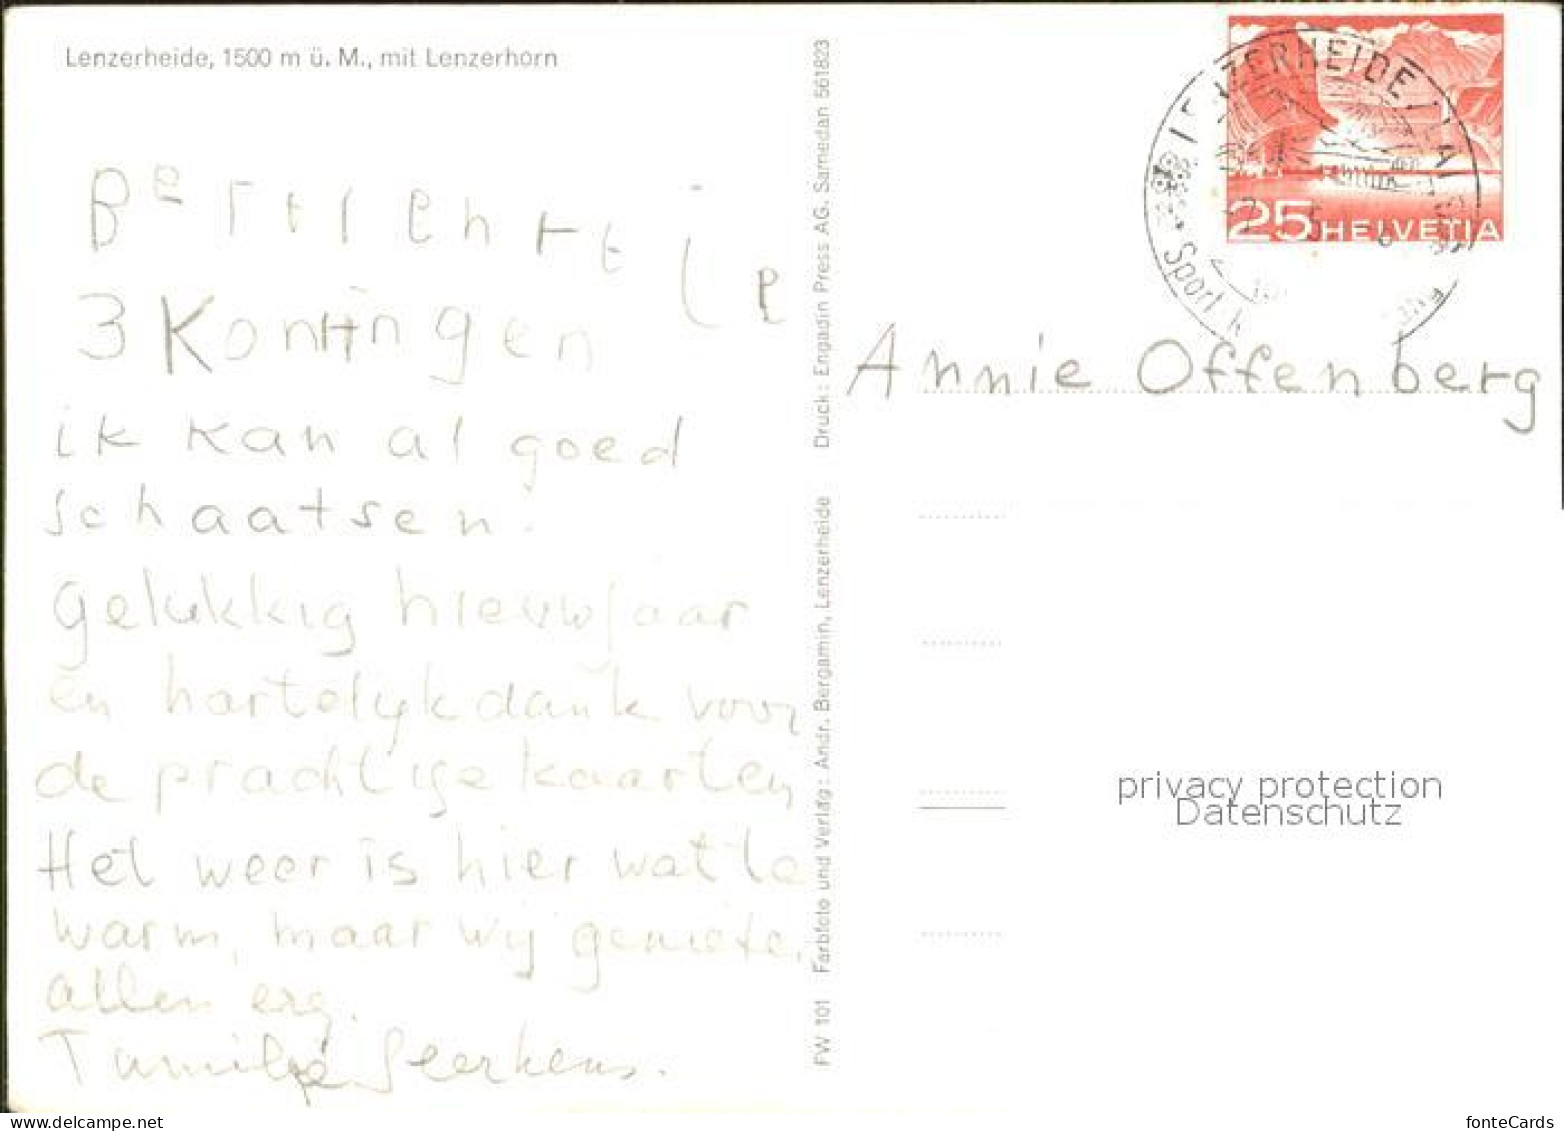 Lenzerheide, 1500 m ü. M., mit Lenzerhorn
3 Koningen
ik kan al goed
schaatsen.
gelukkig nieuwjaar
en hartelijk dank voor
de prachtige kaarten
Het weer is hier wat te
warm, maar wij genieten
allen erg.
Familie
FW 101 Farbfoto und Verlag: Andr. Bergamin, Lenzerheide Druck: Engadin Press AG. Samedan 561823
LENZERHEIDE/LAI
Sport
25 HELVETIA
Annie Offenberg
privacy protection
Datenschutz
www.delcampe.net
fonteCards